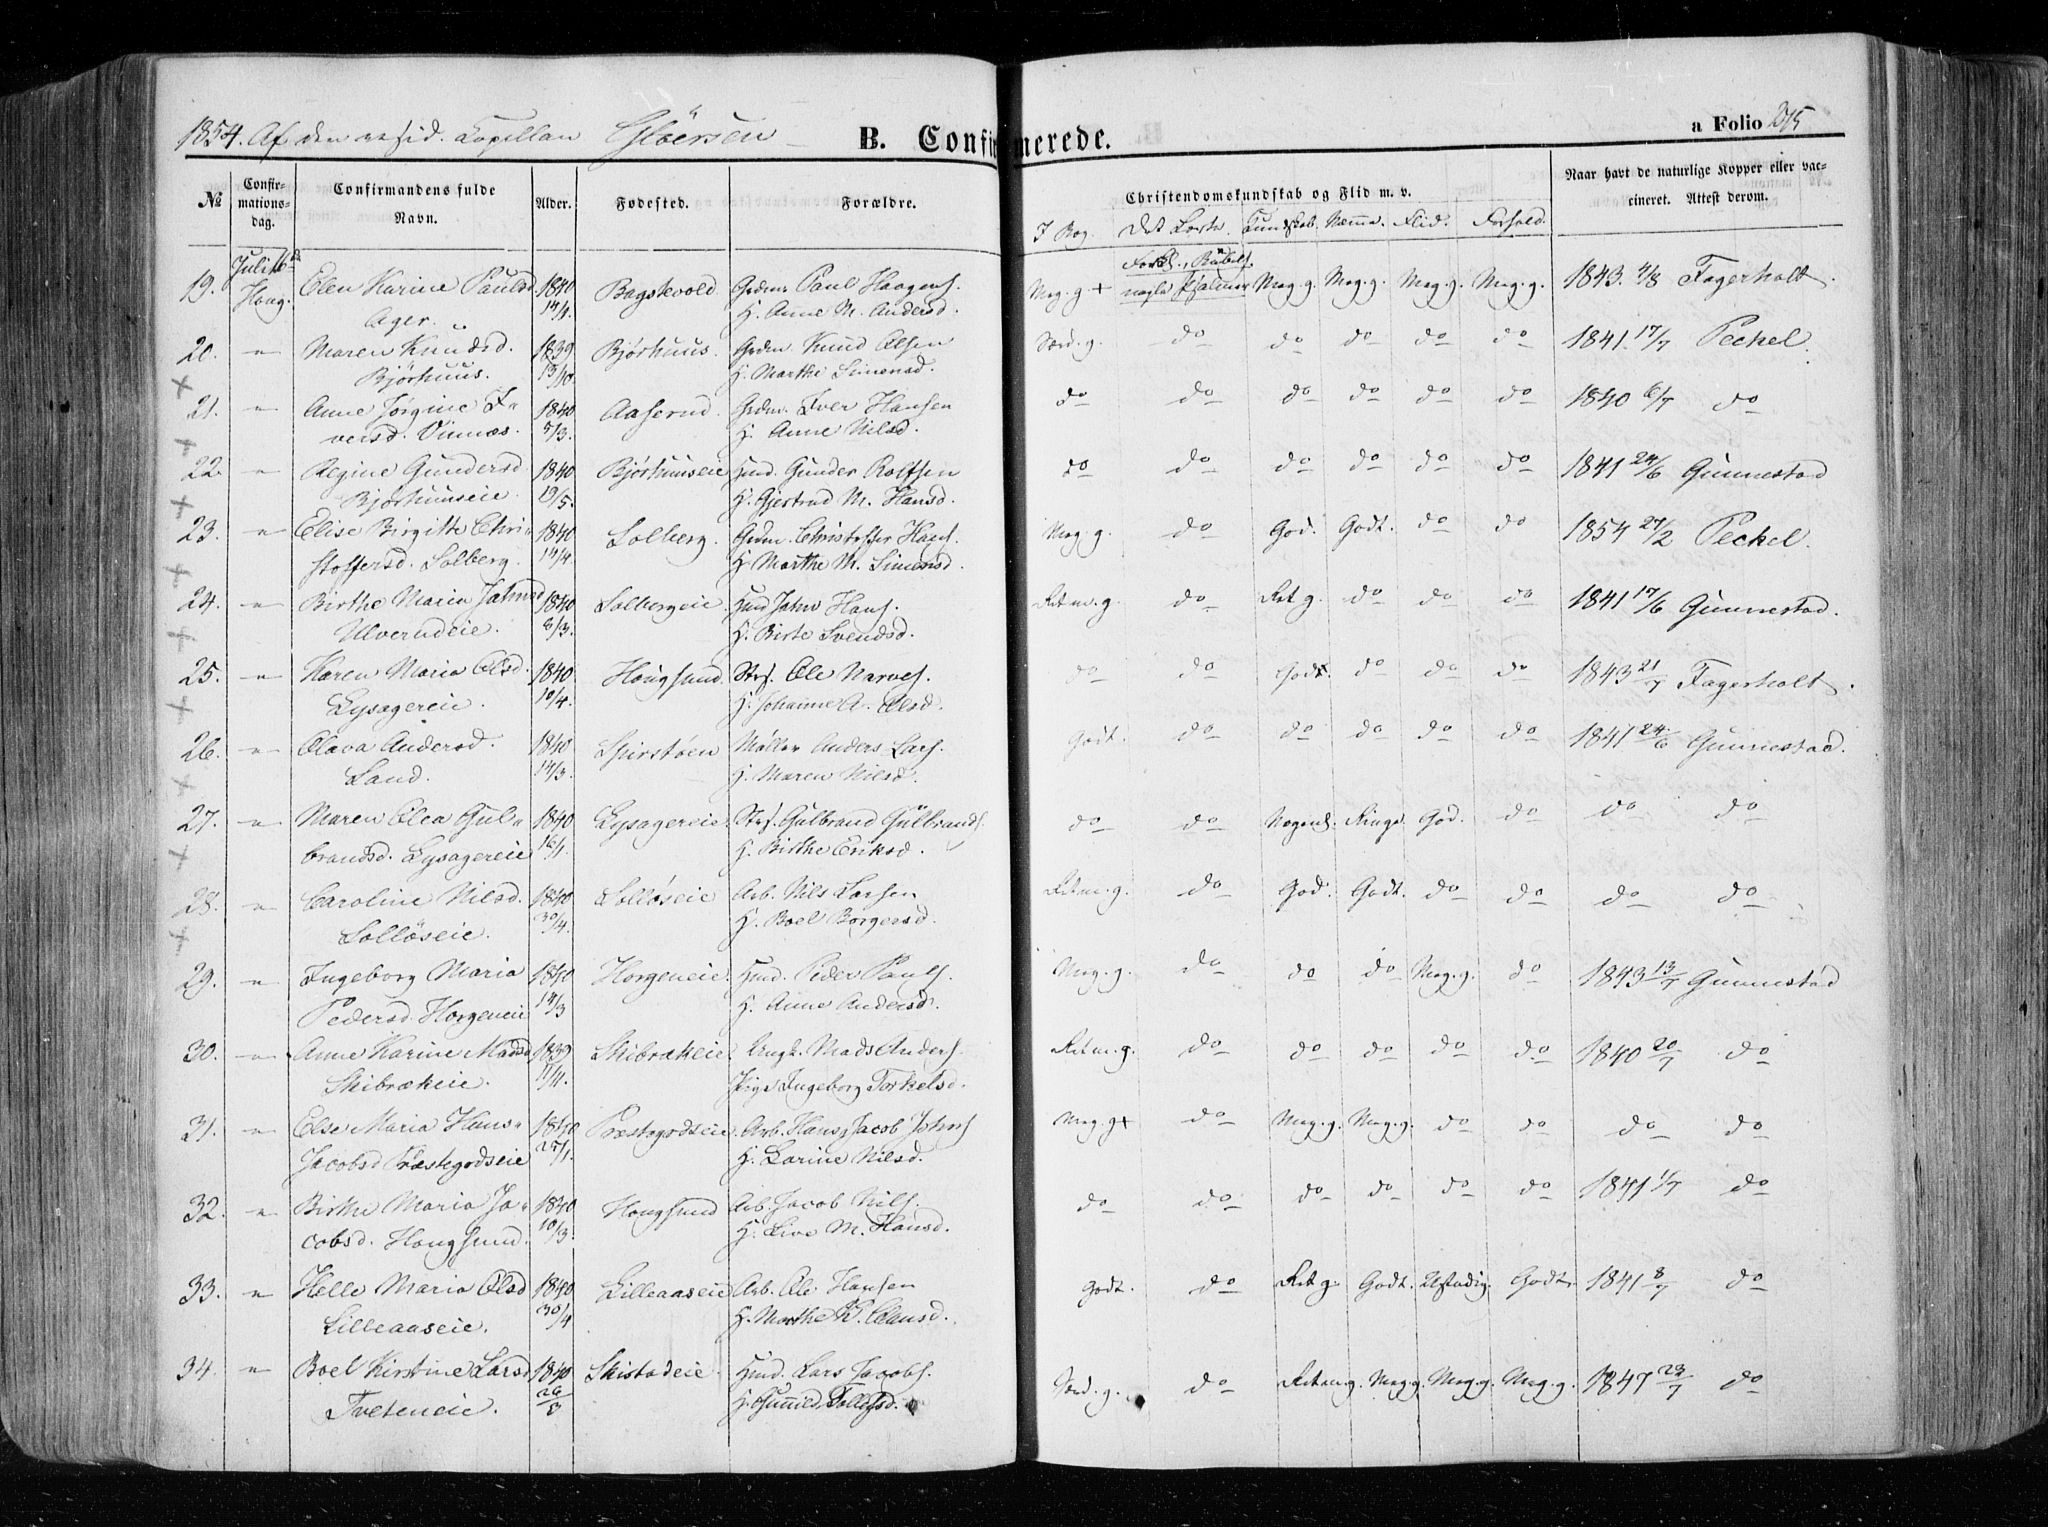 1854. Af den resid. Capellan Gløersen
B. Confirmerede.
a Folio 215
No
Confirmationsdag.
Confirmandens fulde Navn.
Alder.
Fødested.
Forældre.
Christendomskundskab og Flid m. v.
Naar havt de naturlige Kopper eller vaccineret. Attest derom.
I Bog. Det Lærte Kundskab. Nemme. Flid. Forhold.
19. Juli 16 Elen Karine Paulsd. 1840 Bagskvold Grdm. Paul Haagens. Meg. g + Meg. g. Meg. g. Meg. g. Meg. g. 1843. 4/8 Fagerholt.
Haug. Ager. 14/1. H. Anne M. Andersd. nogle Psalmer
20. " Maren Knudsd. 1839 Bjørhuus. Grdm. Knud Olsen Særd. g. do do do do do 1841. 17/7 Pechel
Bjørhuus. 13/10. H. Marthe Simensd.
21. " Anne Jørgine I- 1840 Aaserud. Grdm. Iver Hansen do do do do do do 1840 6/7 do
versd. Vinnæs. 5/3. H. Anne Nilsd.
22. " Regine Gundersd 1840 Bjørhuuseie Hmd. Gunder Rolfsen do do do do do do 1841 24/6 Gunnestad
Bjørhuuseie. 19/5. H. Gjertrud M. Hansd.
23. " Elise Birgitte Chri- 1840 Solberg. Grdm. Christoffer Hans. Meg. g. do God. Godt. do do 1854 27/2 Pechel.
stoffersd. Solberg. 14/4. H. Marthe M. Simensd.
24. " Birthe Maria Johnsd 1840 Solbergeie Hmd John Hans. Ret m. g. do Ret g. do do do 1841 17/6 Gunnestad.
Ulverudeie. 8/3. H. Birte Svendsd.
25. " Karen Maria Olsd. 1840 Hougsund. Strf. Ole Narves. do do Godt. do do do 1843 21/7 Fagerholt.
Lysagereie. 10/4. H. Johanne A. Olsd.
26. " Olava Andersd. 1840 Spirstøen Møller Anders Lars. Godt. do do do do do 1841 24/6 Gunnestad.
Land. 14/3. H. Maren Nilsd.
27. " Maren Olea Gul- 1840 Lysagereie. Strf. Gulbrand Gulbrands. do do Nogenl. Ringe. God. do do do
brandsd. Lysagereie 16/1. H. Birthe Eriksd.
28. " Caroline Nilsd. 1840 Solløseie Arb. Nils Larsen Ret m. g. do God. Godt. do do do do
Solløseie. 30/4. H. Boel Borgersd.
29. " Ingeborg Maria 1840 Horgeneie. Hmd. Peder Pauls. Meg. g. do do do Meg. g. do 1843 13/7 Gunnestad
Pedersd. Horgeneie 14/3 H. Anne Andersd.
30. " Anne Karine Madsd 1839 Skibrækeie. Ungk. Mads Anders. Ret m. g. do do do do do 1840 20/7 do
Skibrækeie. 11/11. Pige Ingeborg Torkelsd.
31. " Else Maria Hans- 1840 Præstegrdseie. Arb. Hans Jacob Johns. Meg. g + do Meg. g. Meg. g. do do do do
Jacobsd Præstegrdseie 27/1. H. Karine Nilsd.
32. " Birthe Maria Ja- 1840 Hougsund Arb. Jacob Nils. do do do do do do 1841 1/7 do
cobsd. Hougsund. 10/3. H. Live M. Hansd.
33. " Helle Maria Olsd 1840 Lilleaaseie Arb. Ole Hansen Godt. do Ret g. Godt. Ustadig. Godt. 1841 8/7 do
Lilleaaseie. 30/4 H. Marthe K. Clausd.
34. " Boel Kirstine Larsd 1840 Skistadeie. Hmd. Lars Jacobs. Særd. g. do Ret m. g. Meg. g. Meg. g. Meg. g. 1847 23/7 do
Tveteneie. 26/3 H. Gunnild Tollefsd.